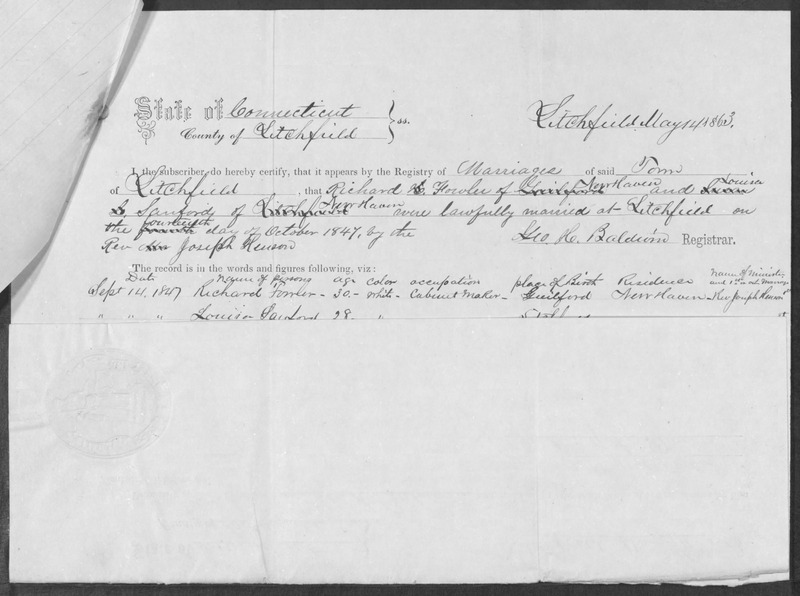 State of Connecticut } ss. Litchfield May 14 1863.
County of Litchfield
I, the subscriber, do hereby certify, that it appears by the Registry of Marriages of said Town
of Litchfield, that Richard Fowler of New Haven and Louisa
Sanford of New Haven were lawfully married at Litchfield on
the fourteenth day of October 1847, by the
Rev Joseph Henson
Geo. H. Baldwin Registrar.
The record is in the words and figures following, viz:
Date name of persons age color occupation place of Birth Residence name of minister
Sept 14. 1847 Richard Fowler - 30. - white - Cabinet Maker - Guilford New Haven - Rev Joseph Henson
" " " Louisa Sanford 28. "